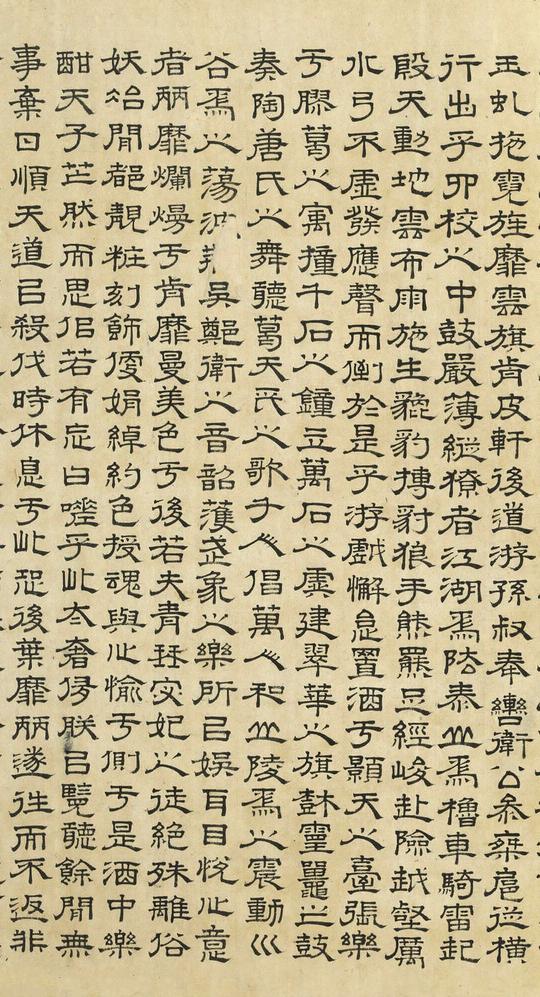 玉虬拖霓旌靡雲旗前皮軒後道游孫叔奉轡衛公參乘扈從橫
行出乎四校之中鼓嚴薄縱獠者江湖為阹泰山為櫓車騎雷起
殷天動地雲布雨施生貔豹搏豺狼手熊羆足經峻赴險越壑厲
水弓不虛發應聲而倒於是乎游戲懈怠置酒于顥天之臺張樂
于膠葛之寓撞千石之鐘立萬石之虡建翠華之旗樹靈鼉之鼓
奏陶唐氏之舞聽葛天氏之歌千人倡萬人和山陵為之震動川
谷為之蕩波荊吳鄭衛之音韶濩武象之樂所以娛耳目悅心意
者麗靡爛熳于前靡曼美色于後若夫青琴宓妃之徒絕殊離俗
妖冶閒都靚粧刻飾便娟綽約色授魂與心愉于側于是酒中樂
酣天子芒然而思佀若有忘曰嗟乎此太奢侈朕以覽聽餘閒無
事棄日順天道以殺伐時休息于此恐後葉靡麗遂往而不返非